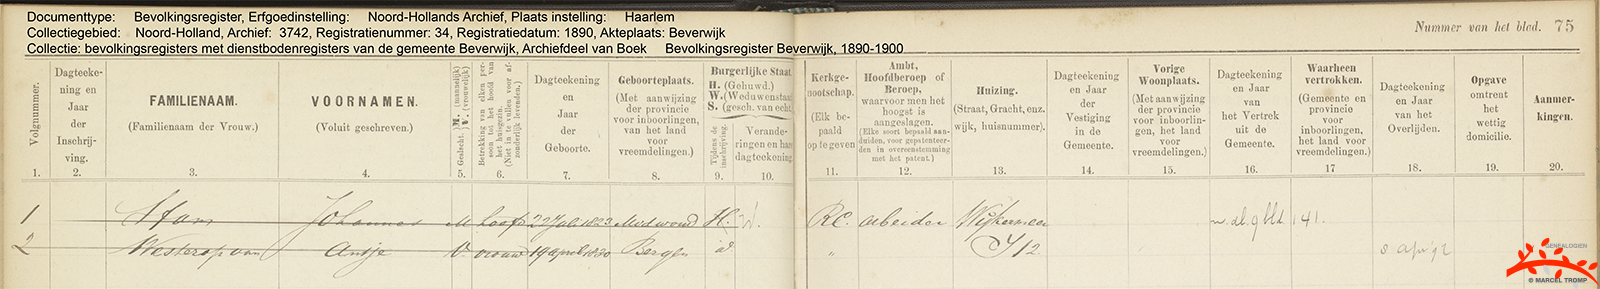 Documenttype: Bevolkingsregister, Erfgoedinstelling: Noord-Hollands Archief, Plaats instelling: Haarlem
Collectiegebied: Noord-Holland, Archief: 3742, Registratienummer: 34, Registratiedatum: 1890, Akteplaats: Beverwijk
Collectie: bevolkingsregisters met dienstbodenregisters van de gemeente Beverwijk, Archiefdeel van Boek Bevolkingsregister Beverwijk, 1890-1900
Nummer van het blad. 75
Volgnummer.
1.
Dagteeke-
ning en
Jaar
der
Inschrij-
ving.
2.
FAMILIENAAM.
(Familienaam der Vrouw.)
3.
VOORNAMEN.
(Voluit geschreven.)
4.
Geslacht. M. (mannelijk) V. (vrouwelijk)
5.
Betrekking van elken per-
soon tot het hoofd van
het huisgezin.
(Niet in te vullen voor af-
zonderlijk levenden.)
6.
Dagteekening
en
Jaar
der
Geboorte.
7.
Geboorteplaats.
(Met aanwijzing
der provincie
voor inboorlingen,
van het land
voor
vreemdelingen.)
8.
Burgerlijke Staat.
H. (Gehuwd.)
W. (Weduwenstaat)
S. (gesch. van echt.)
Tijdens de
inschrijving.
9.
Verande-
ringen en hare
dagteekening.
10.
Kerkge-
nootschap.
(Elk be-
paald
op te geven
11.
Ambt,
Hoofdberoep of
Beroep,
waarvoor men het
hoogst is
aangeslagen.
(Elke soort bepaald aan-
duiden, voor gepatenteer-
den in overeenstemming
met het patent.)
12.
Huizing.
(Straat, Gracht, enz.
wijk, huisnummer).
13.
Dagteekening
en Jaar
der
Vestiging
in de
Gemeente.
14.
Vorige
Woonplaats.
(Met aanwijzing
der provincie
voor inboorlin-
gen, het land
voor
vreemdelingen.)
15.
Dagteekening
en Jaar
van
het Vertrek
uit de
Gemeente.
16.
Waarheen
vertrokken.
(Gemeente en
provincie
voor
inboorlingen,
het land voor
vreemdelingen.)
17
Dagteekening
en Jaar
van het
Overlijden.
18.
Opgave
omtrent
het
wettig
domicilie.
19.
Aanmer-
kingen.
20.
1 Stam Johannes M hoofd 22 Juli 1823 H. W. R.C. arbeider 141.
2 Westerop van Antje V. vrouw 19 april Bergen id " 12. 8 apr '92
GENEALOGIEN
© MARCEL TROMP